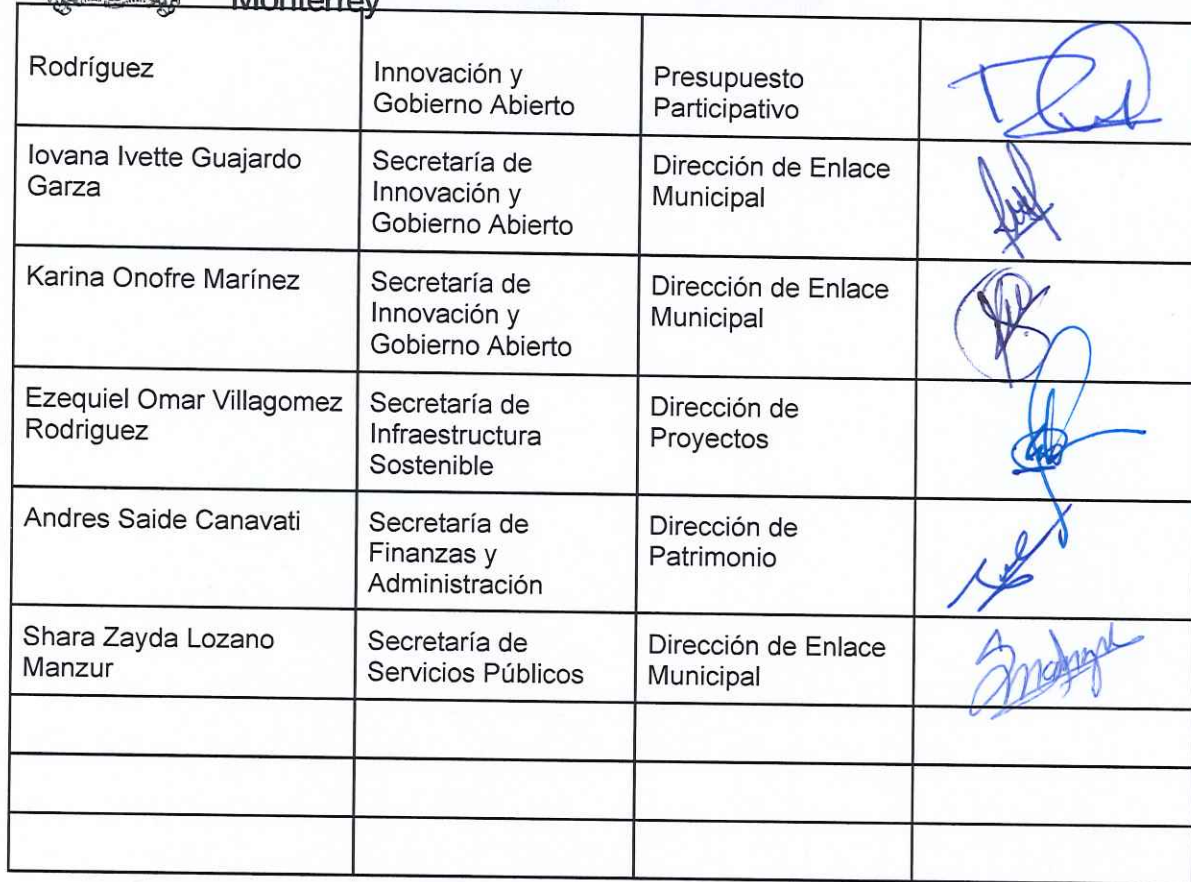 Monterrey
Rodríguez
Innovación y
Gobierno Abierto
Presupuesto
Participativo
Iovana Ivette Guajardo
Garza
Secretaría de
Innovación y
Gobierno Abierto
Dirección de Enlace
Municipal
Karina Onofre Marínez
Secretaría de
Innovación y
Gobierno Abierto
Dirección de Enlace
Municipal
Ezequiel Omar Villagomez
Rodriguez
Secretaría de
Infraestructura
Sostenible
Dirección de
Proyectos
Andres Saide Canavati
Secretaría de
Finanzas y
Administración
Dirección de
Patrimonio
Shara Zayda Lozano
Manzur
Secretaría de
Servicios Públicos
Dirección de Enlace
Municipal